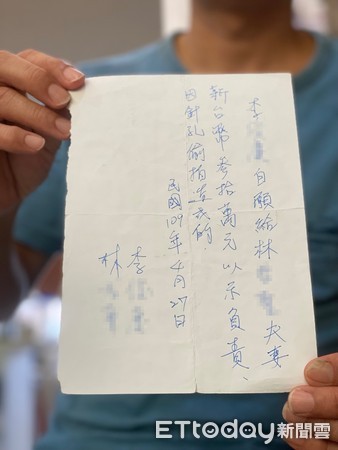 李 自願給林 夫妻
新台幣參拾萬元以示負責、
因針孔偷拍造成的
民國109年4月27日
李
林
ETtoday新聞雲